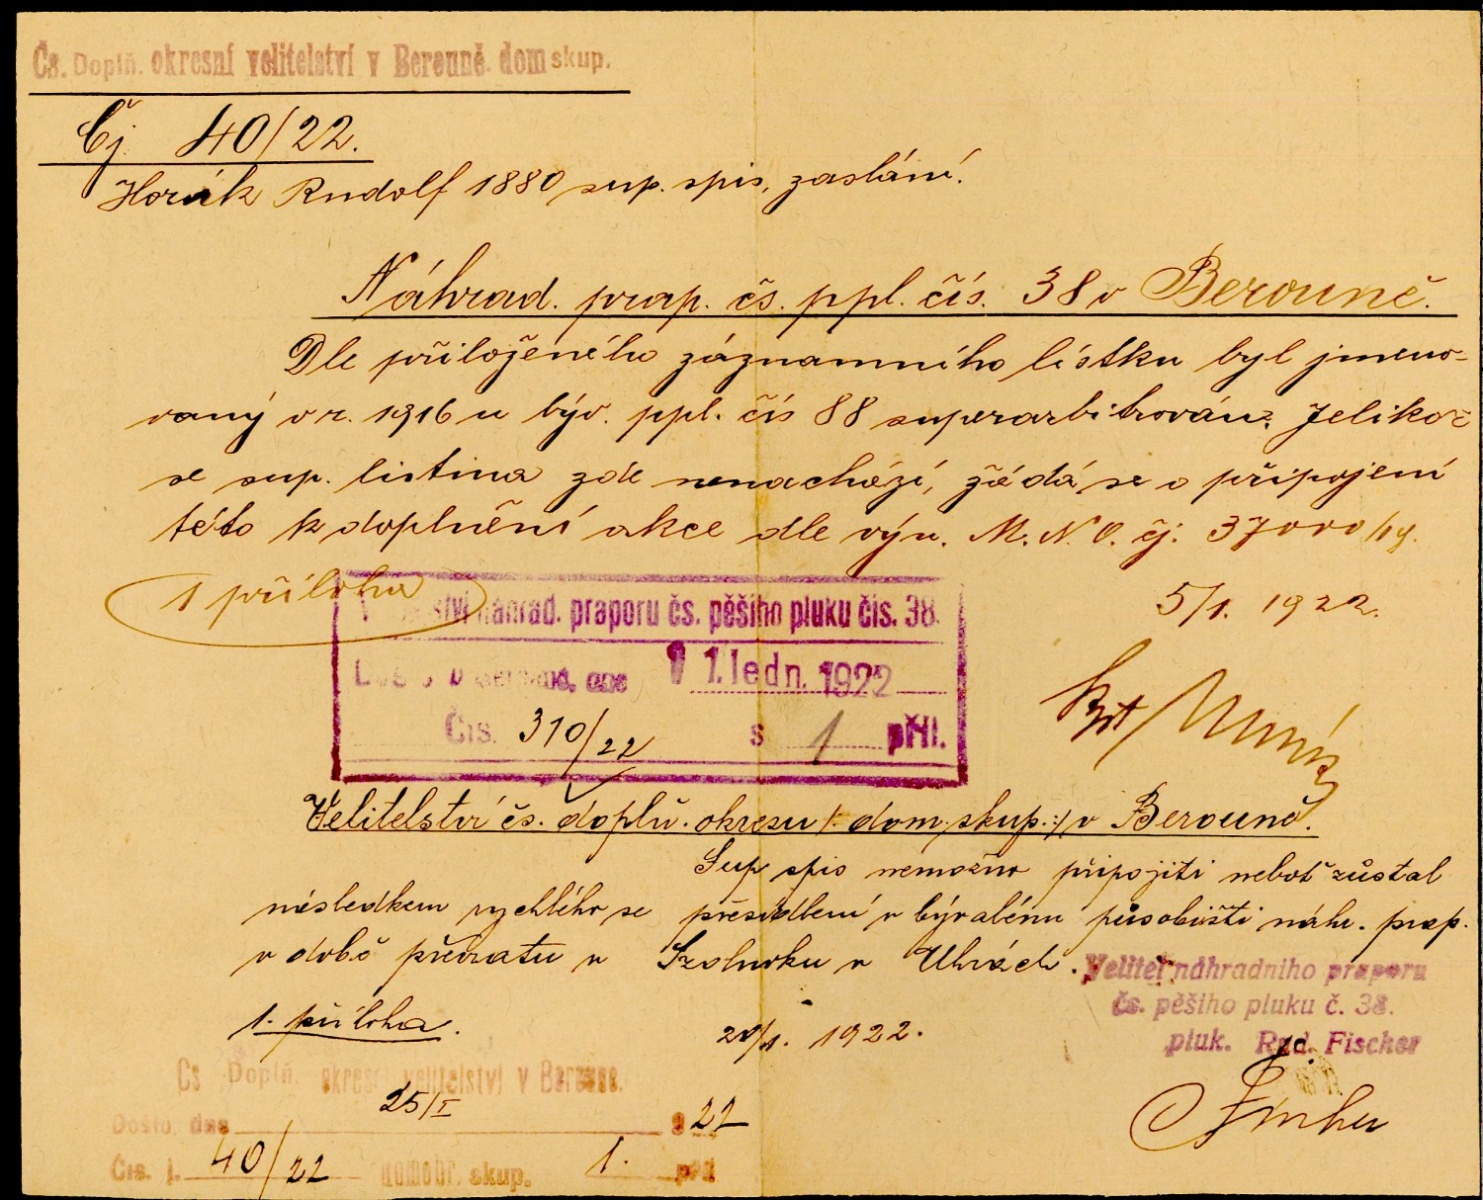 Čs. Doplň. okresní velitelství v Berouně. dom skup.
Čj. 40/22.
Horák Rudolf 1880 sup. spis, zaslání.
Náhrad. prap. čs. ppl. čís. 38 v Berouně.
Dle přiloženého záznamního lístku byl jmeno-
vaný v r. 1916 u býv. ppl. čís 88 superarbitrován. Jelikož
se sup. listina zde nenachází, žádá se o připojení
této k doplnění akce dle výn. M. N. O. čj. 37000/19.
1 příloha
5/1. 1922.
náhrad. praporu čs. pěšího pluku čís. 38.
dne 11. ledn. 1922
Čís. 310/22 s 1 příl.
Velitelství čs. doplň. okresu /: dom. skup.:/ v Berouně.
Sup spis nemožno připojiti neboť zůstal
následkem rychlího se přesídlení v bývalému působišti náhr. prap.
v době převratu v Szolnoku v Uhrách.
Velitel náhradního praporu
čs. pěšího pluku č. 38.
pluk. Rud. Fischer
1. příloha.
20/1. 1922.
Čs Doplň. okresní velitelství v Berouně.
Došlo dne 25/I 22
Čís. j. 40/22 domobr. skup. 1. příl